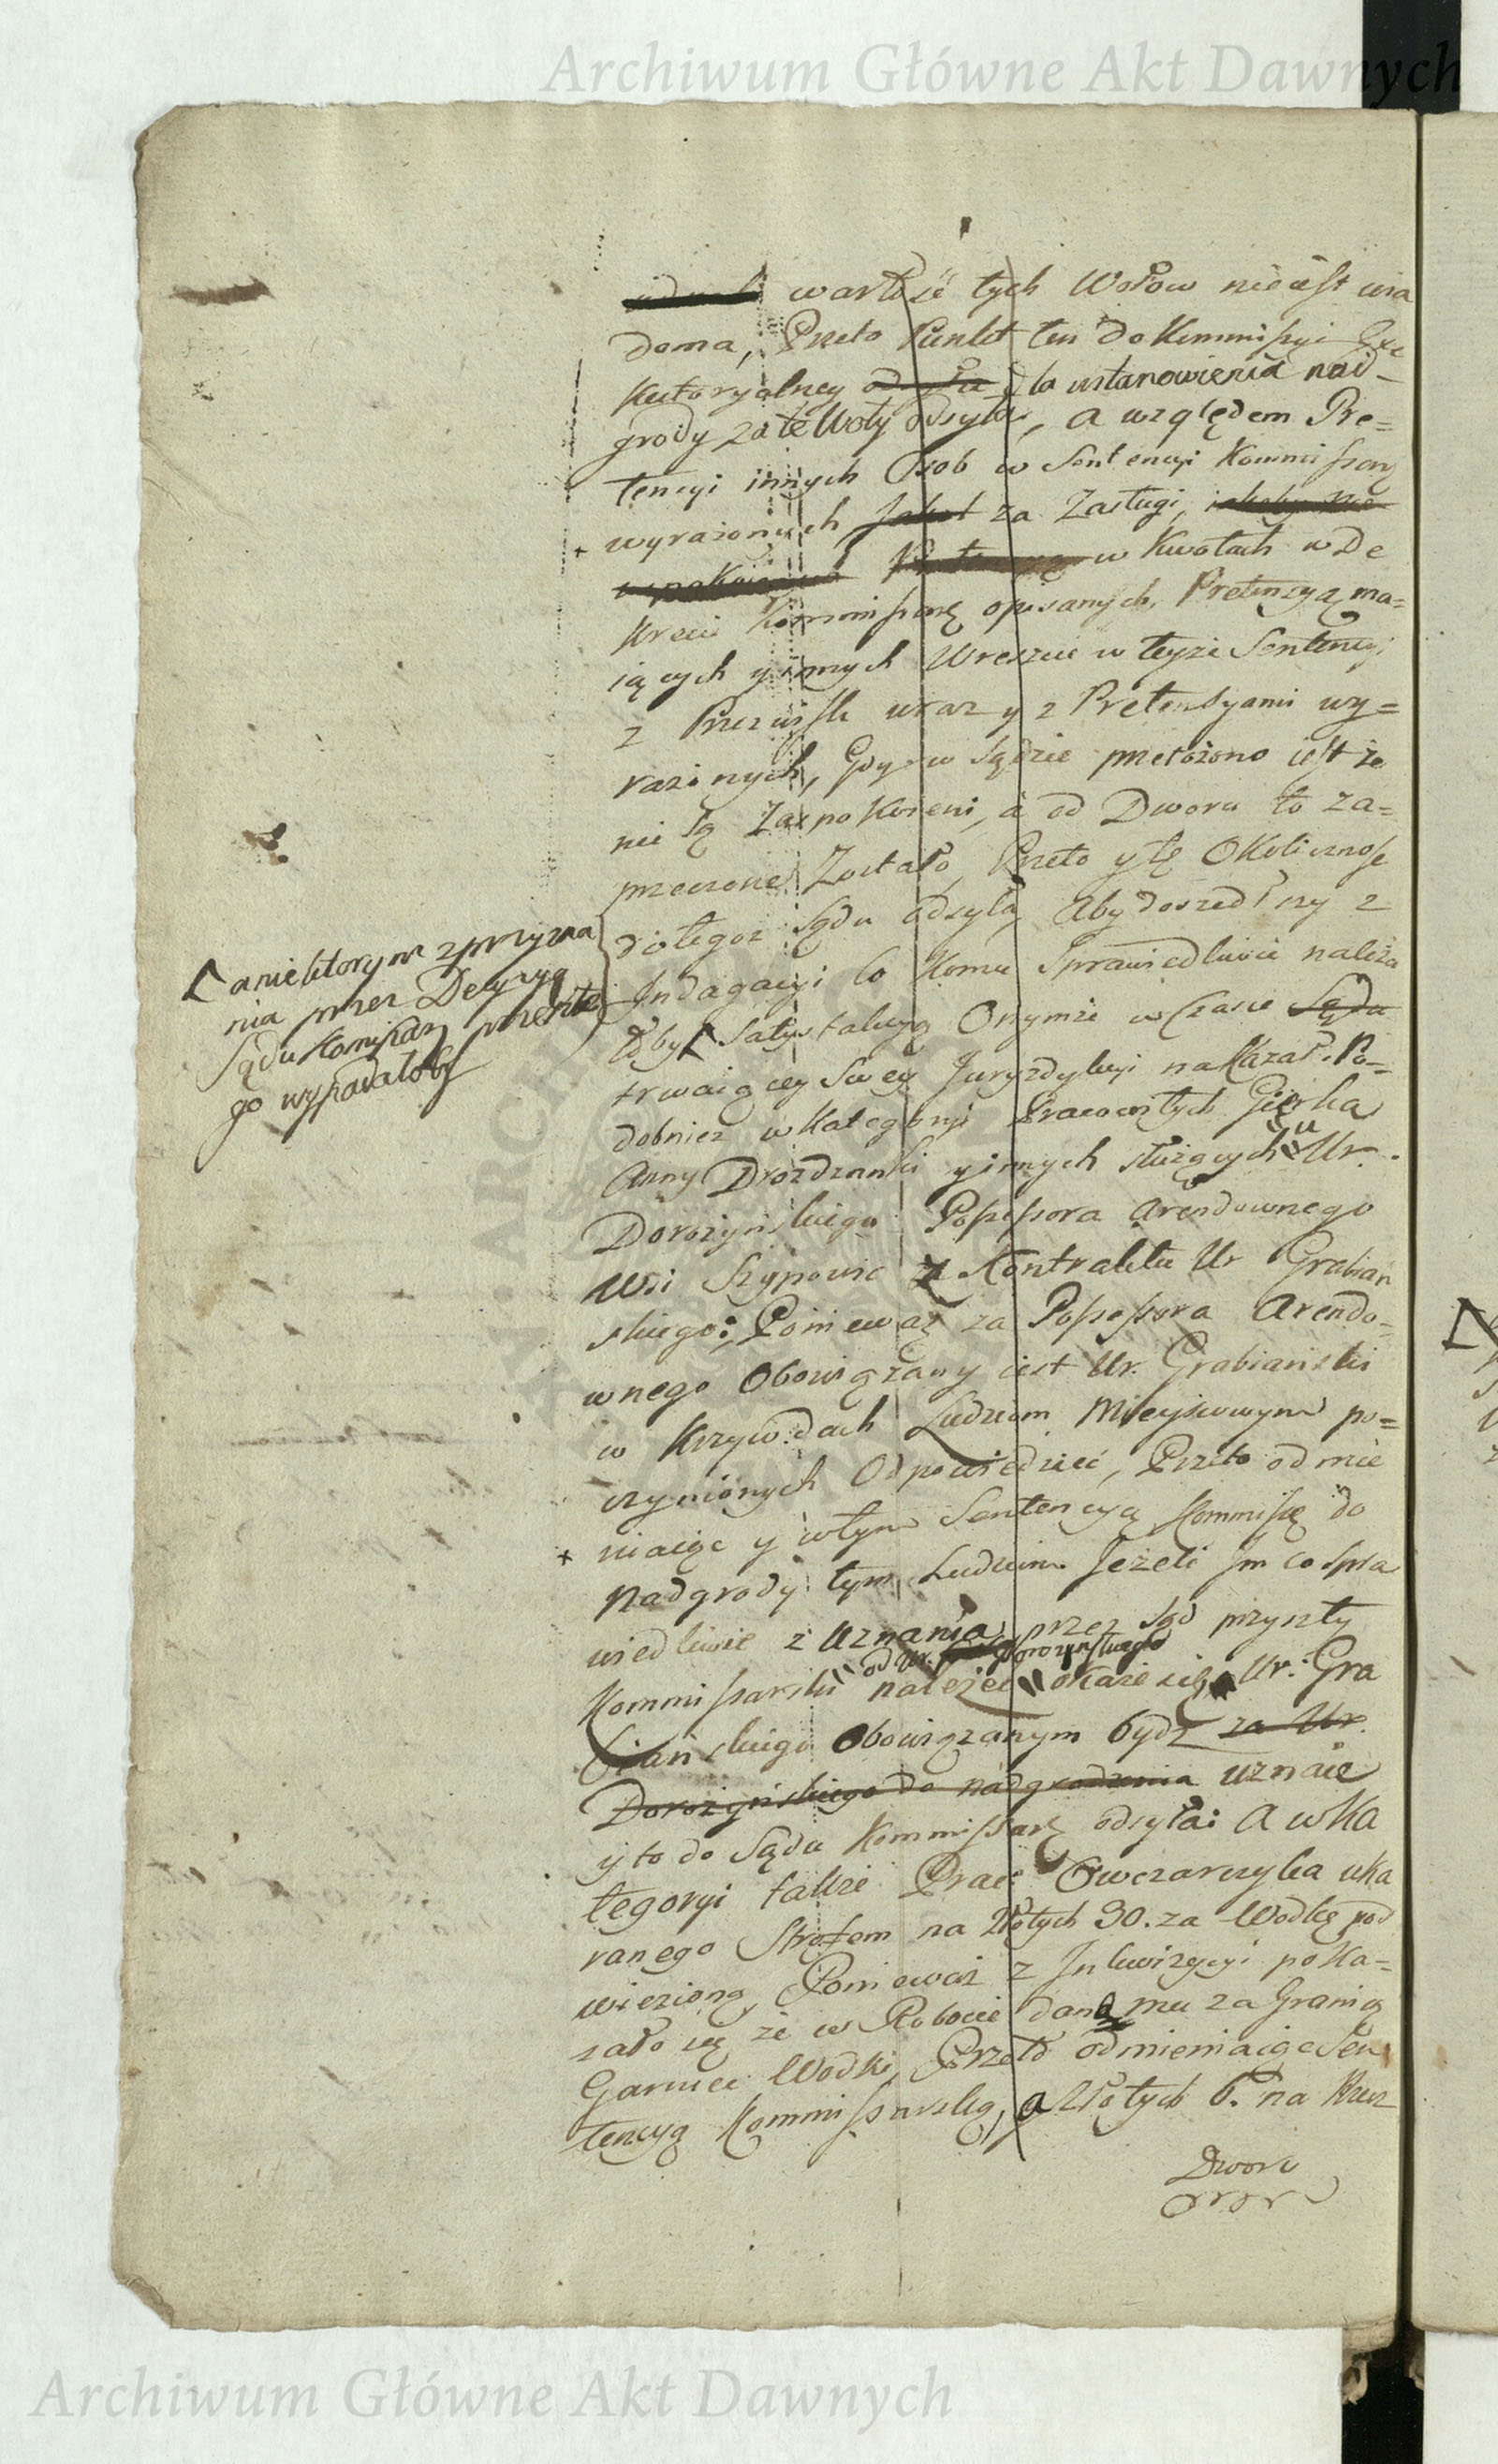 Archiwum Główne Akt Dawnych
wartość tych Wołow nieiest wia
doma, Przeto Punkt ten do Kommissyi Exe
kutoryalney odsyła dla ustanowienia nad-
grody za te Woły odsyła, a względem Pre=
tencyi innych Osob w Sentencyi Kommissars
wyrażonych za Zasługi,
w Kwotach w De
krecie Kommissarę opisanych, Pretensyą ma=
iących y innych Wreszcie w teyże Sentencyi
z Przezwisk wraz y z Pretensyami wy=
rażonych, Gdy w Sądzie przełożono iest że
nie są Zaspokoieni, a od Dworu to za=
przeczone Zostało, Przeto y tę Okolicznosc
do tegoż Sądu odsyła, Aby doszedłszy z
Indagacyi co Komu Sprawiedliwie należa
łoby Satysfakcyą Onymże w Czasie Sądu
trwaiącey Swey Juryzdykcyi nakazał. Po=
dobnież w Kategoryi Pracowitych Gierka
Anny Drozdzanki y innych służących u Ur.
Dorożyńskiego Possessora Arendownego
Wsi Szypowic z Kontraktu Ur Grabian
skiego; Ponieważ za Possessora Arendo=
wnego Obowiązany iest Ur. Grabianski
w Krzywdach Ludziom Mieyscowym po=
czynionych Odpowiedzieć, Przeto odmie
niaiąc y w tym Sentencyą Kommissę do
Nadgrody tym Ludziom Jeżeli Im co Spra
wiedliwie z Uznania przez Sąd przyszły
od Ur. Dorozynskiego
Kommissarski należeć okaże się, Ur: Gra
biańskiego Obowiązanym bydź za Ur.
Dorożyńskiego do nadgrodzenia uznaie
y to do Sądu Kommissarę odsyła: A w Ka
tegoryi także Prac: Owczarczyka uka
ranego Strofem na Złotych 30. za Wodkę pod
wiezioną, Ponieważ z Inkwizycyi poka=
zało się że w Robocie dano mu za Granicą
Garniec Wodki, Przeto odmieniaiąc Sen
tencyą Kommissarską, a Złotych 6. na Rzecz
Dworu
a niektorym z przyzna
nia przez Decyzyą
Sądu Komissar: przeszłe
go wypadałoby
Archiwum Główne Akt Dawnych